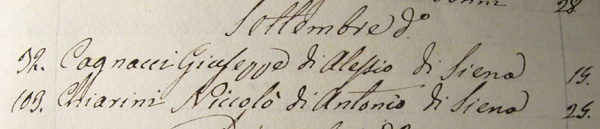 28
Settembre do
32. Cagnacci Giuseppe di Alessio di Siena 19.
103. Chiarini Niccolò di Antonio di Siena 29.